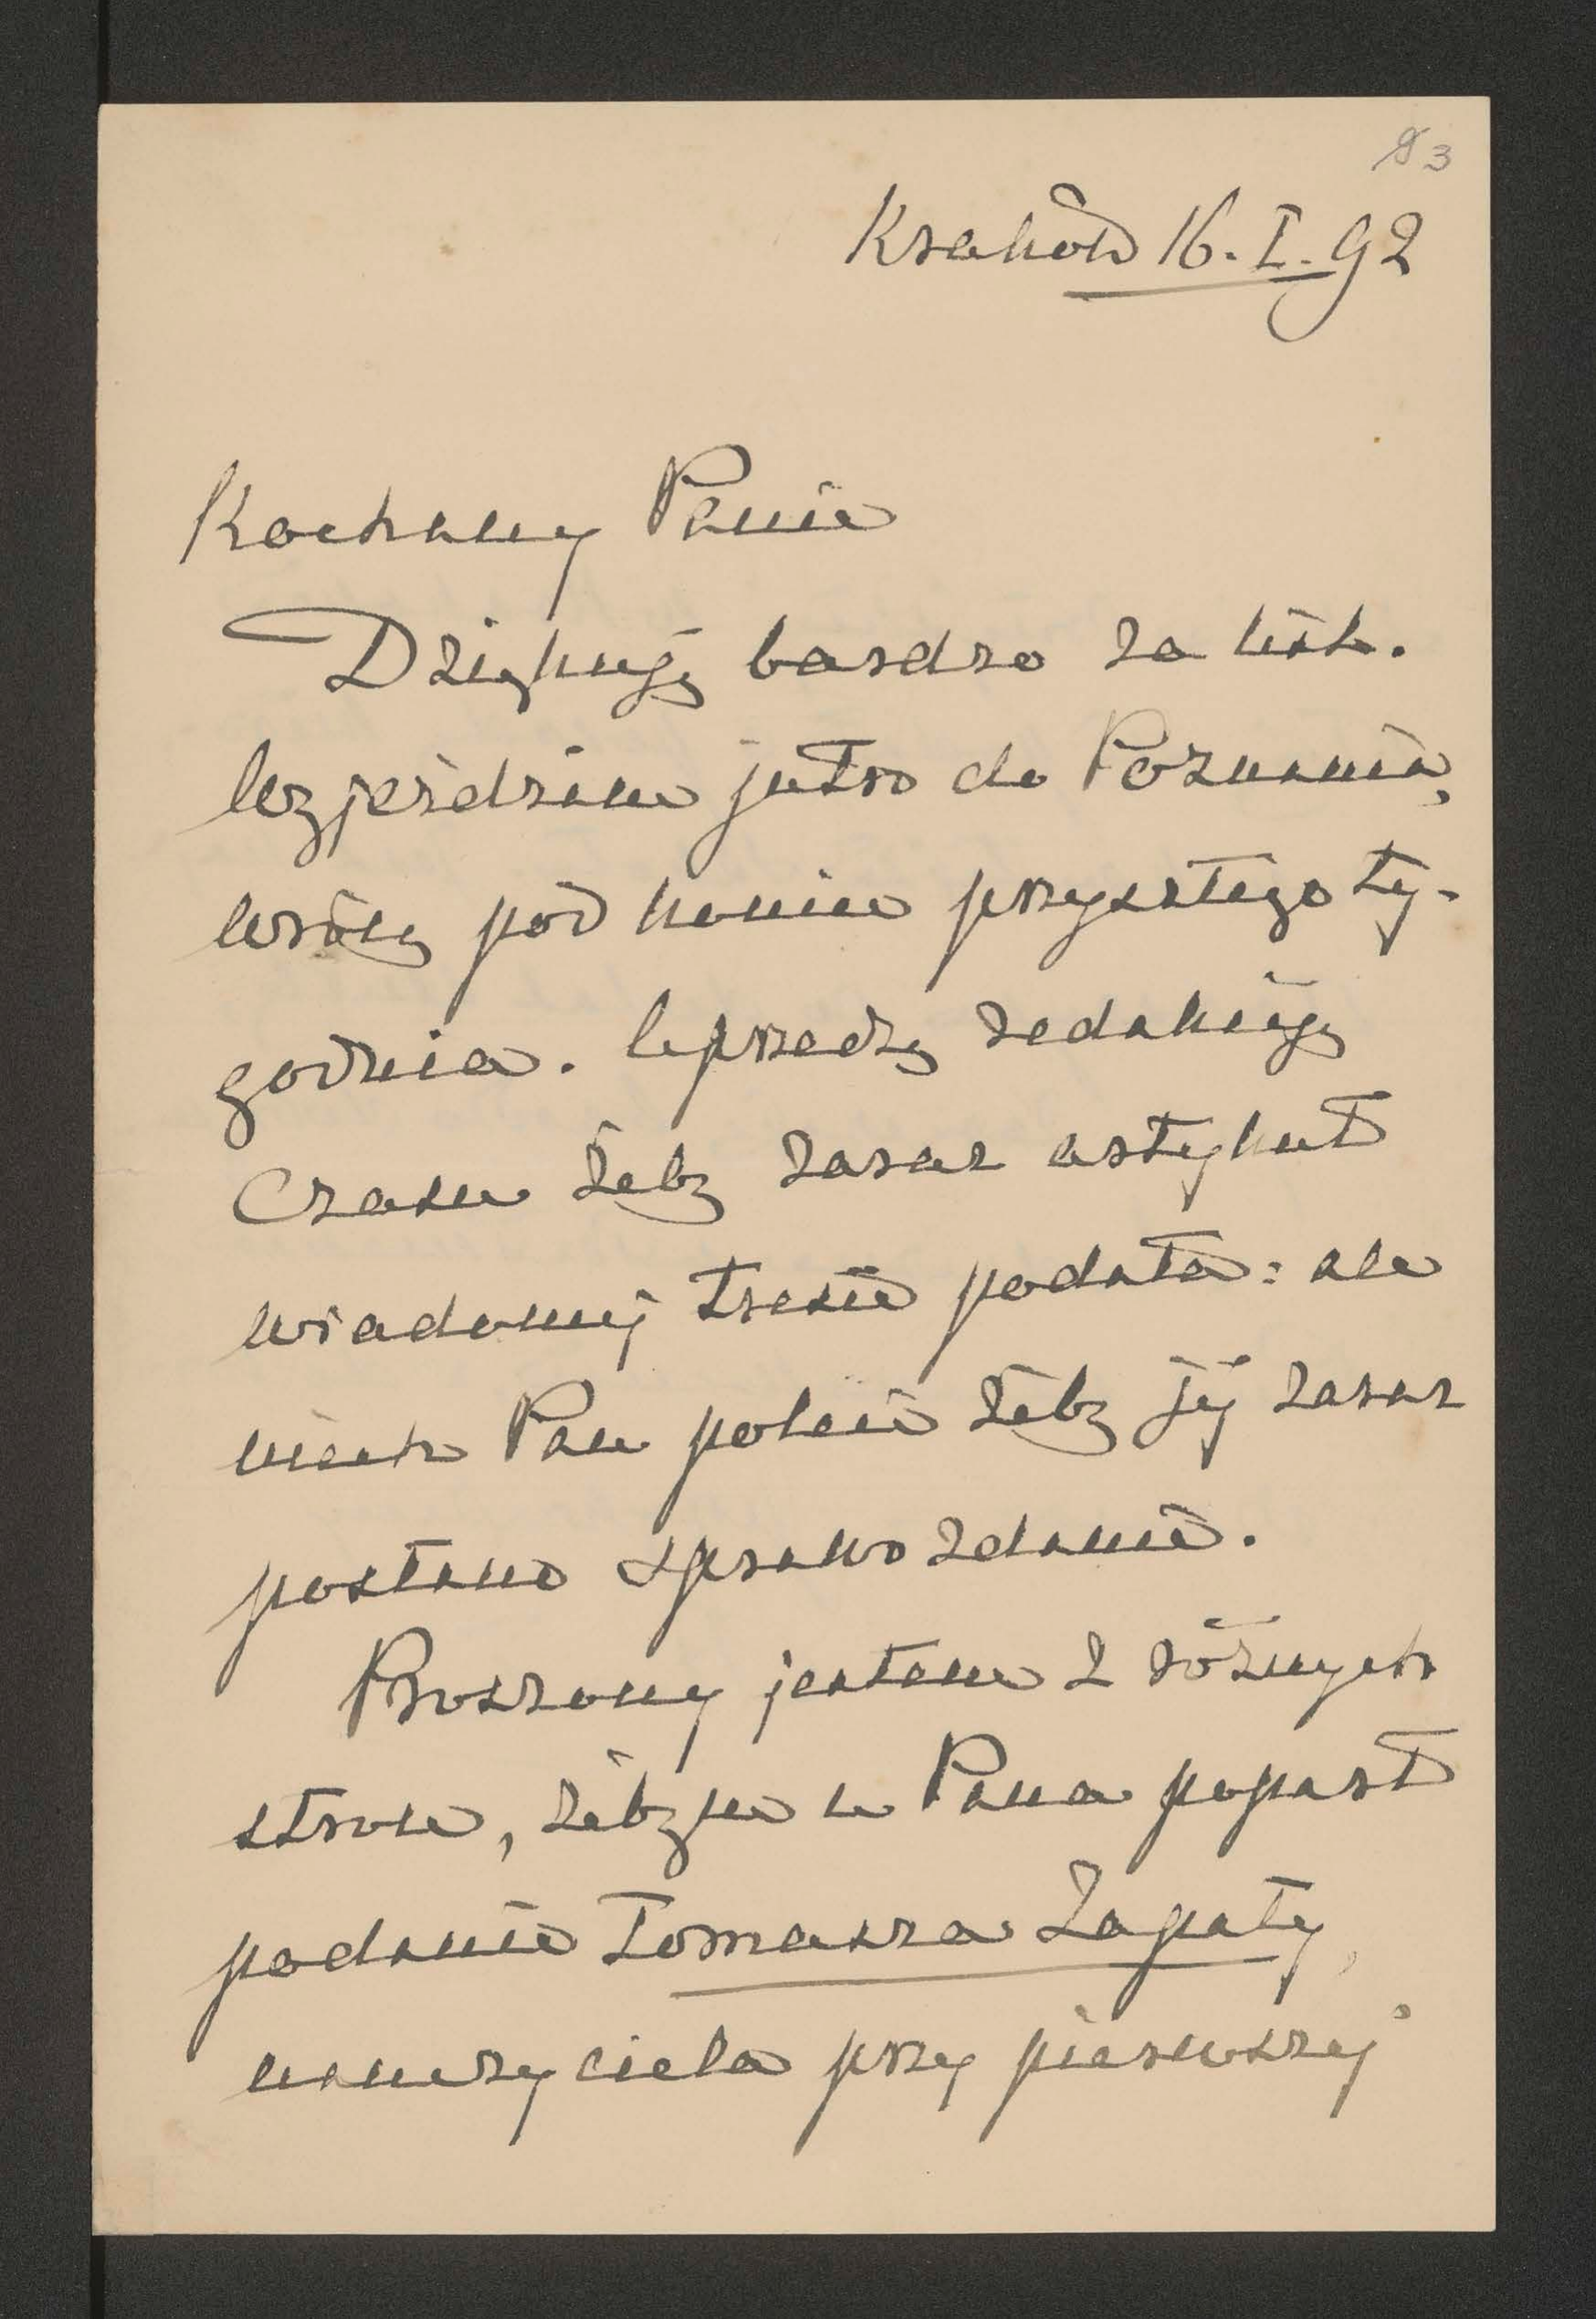 83
Kraków 16. I. 92
Kochany Panie
Dziękuję bardzo za list.
Wyjeżdżam jutro do Poznania,
wrócę pod koniec przyszłego ty-
godnia. Uprzedzę redakcyę
Czasu żeby zaraz artykuł
wiadomej treści podała: ale
niech Pan poleci żeby jej zaraz
posłano sprawozdanie.
Proszony jestem z różnych
stron, żebym u Pana poparł
podanie Tomasza Zapały,
nauczyciela przy pierwszej